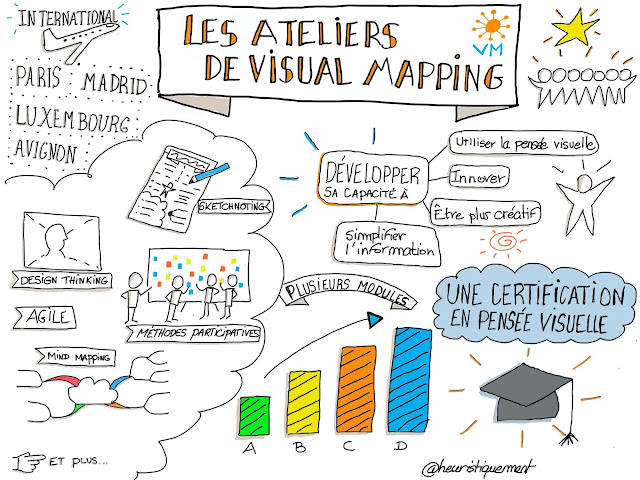 INTERNATIONAL
PARIS MADRID
LUXEMBOURG
AVIGNON
LES ATELIERS
DE VISUAL MAPPING
VM
SKETCHNOTING
DESIGN THINKING
AGILE
MÉTHODES PARTICIPATIVES
MIND MAPPING
ET PLUS...
DÉVELOPPER
SA CAPACITÉ À
Utiliser la pensée visuelle
Innover
Être plus créatif
Simplifier
l'information
PLUSIEURS MODULES
A B C D
UNE CERTIFICATION
EN PENSÉE VISUELLE
@heuristiquement